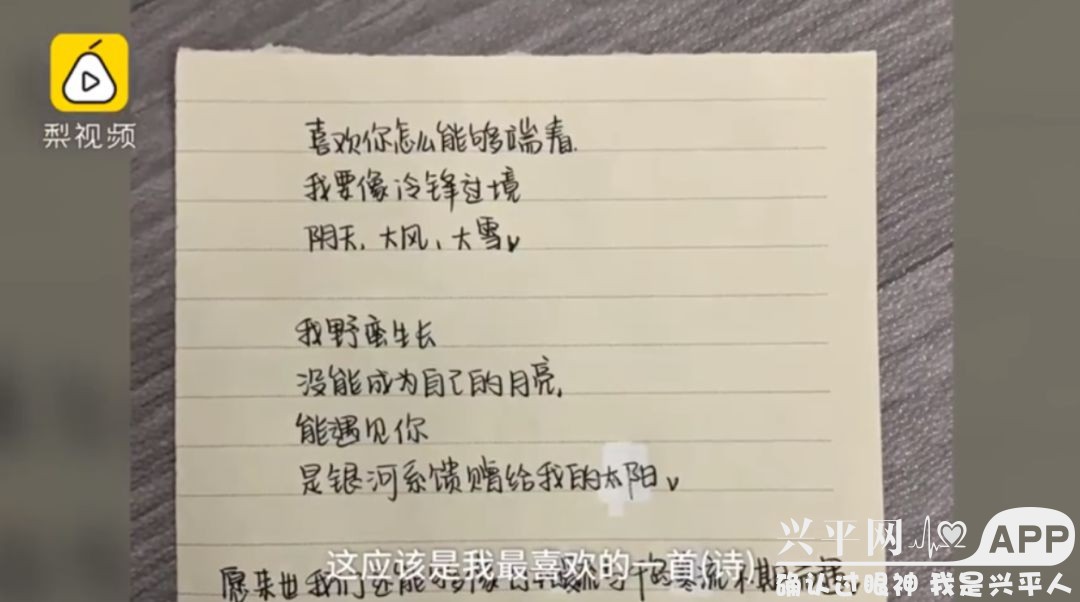 梨视频
喜欢你怎么能够端着
我要像冷锋过境
阴天、大风、大雪
我野蛮生长
没能成为自己的月亮
能遇见你
是银河系馈赠给我的太阳
这应该是我最喜欢的一首(诗)
愿来世我们还能够像 的寒流不期而遇
兴平网 APP
确认过眼神 我是兴平人